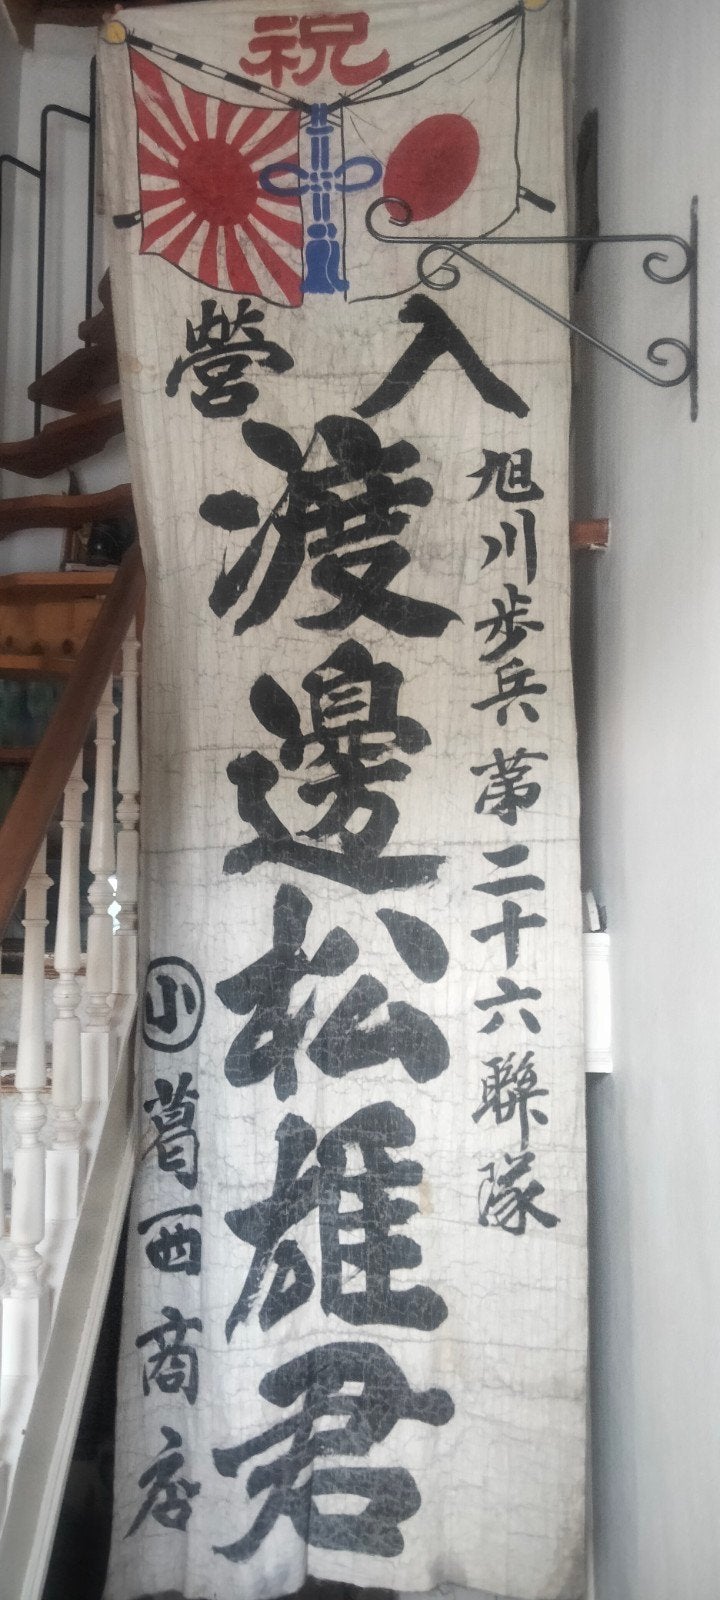 祝
入營
旭川歩兵第二十六聯隊
渡邊松雄君
小葛西商店